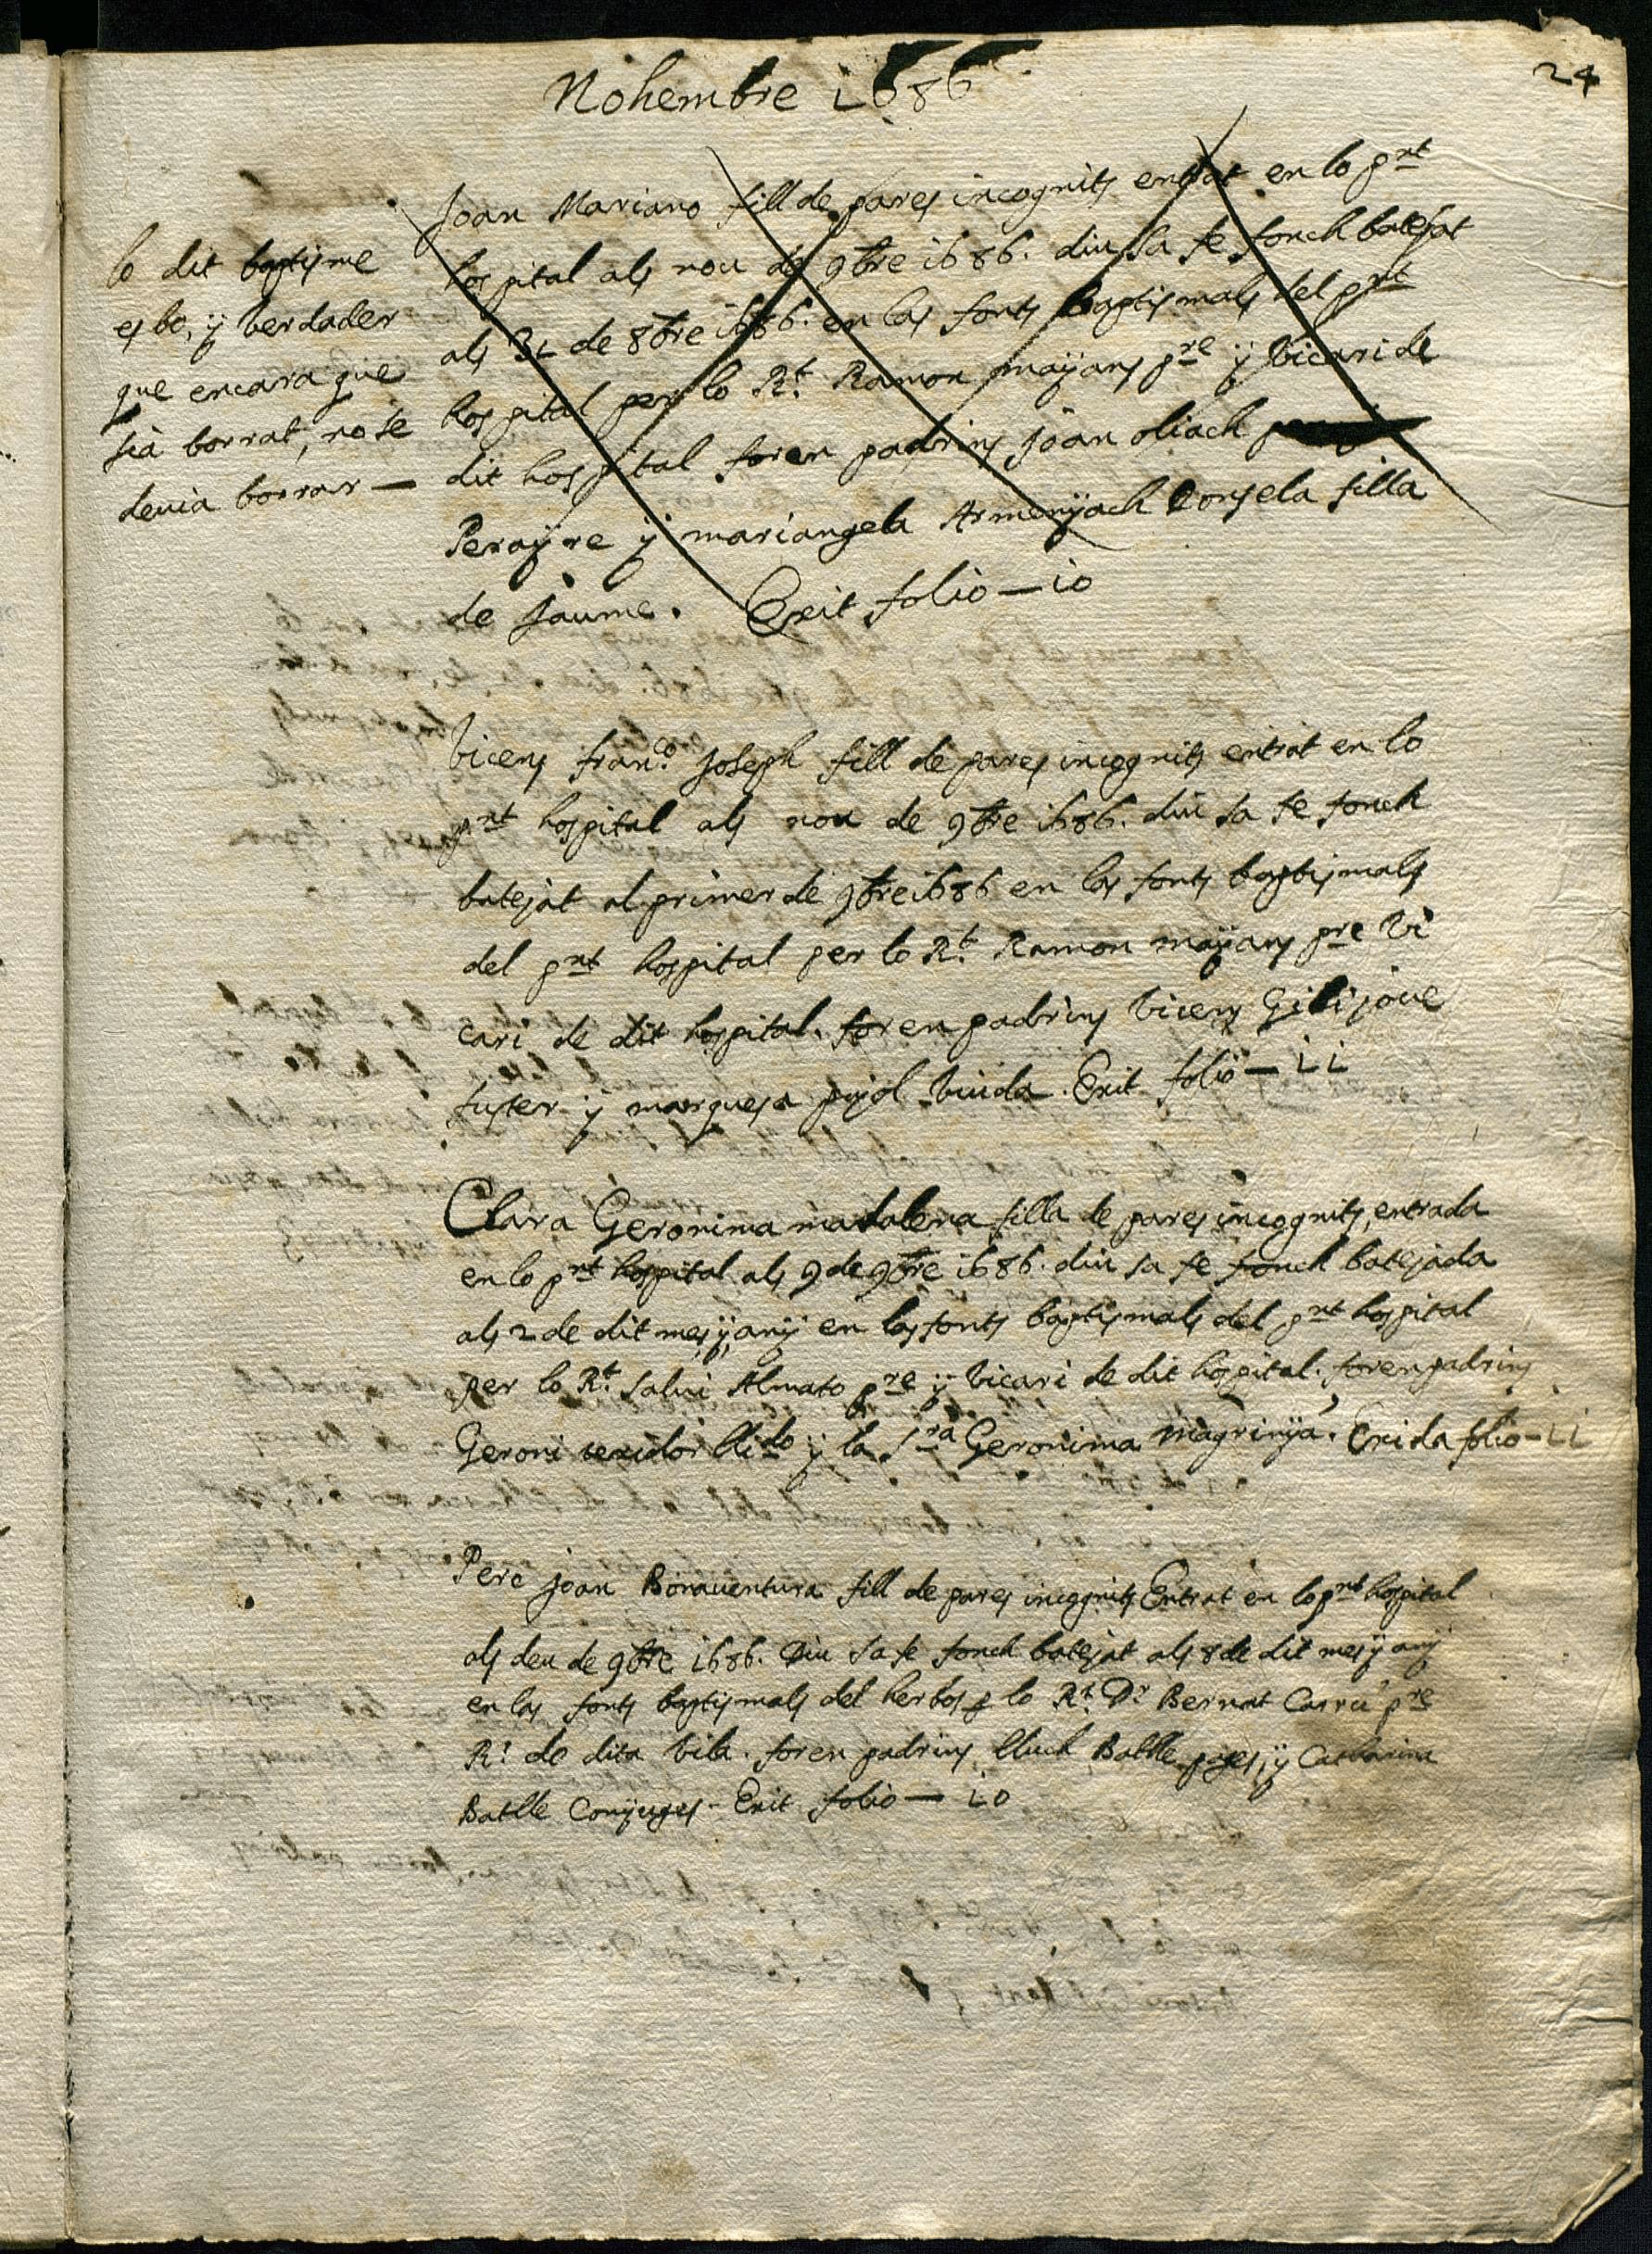 24
Nohembre 1686
lo dit baptisme
es bo, ÿ verdader
que encara que
sia borrat, no se
devia borrar —
Joan Mariano fill de pares incognits entrat en lo pnt
hospital als nou de 9bre 1686. diu sa fe fonch batejat
als 31 de 8bre 1686. en las fonts baptismals del pnt
hospital per lo Rt. Ramon maÿans pre ÿ vicari de
dit hospital foren padrins joan oliach
Peraÿre ÿ mariangela Armenÿach Donsela filla
de Jaume. Exit folio — 10
Vicens franco. Joseph fill de pares incognits entrat en lo
pnt hospital als nou de 9bre 1686. diu sa fe fonch
batejat al primer de 9bre 1686 en las fonts baptismals
del pnt hospital per lo Rt. Ramon maÿans pre Vi
cari de dit hospital. foren padrins Vicens Gili jove
fuster ÿ marquesa pujol viuda. Exit folio — 11
Clara Geronima madalena filla de pares incognits, entrada
en lo pnt hospital als 9 de 9bre 1686. diu sa fe fonch batejada
als 2 de dit mes, ÿ anÿ en las fonts baptismals del pnt hospital
per lo Rt. Salvi Almato pre ÿ vicari de dit hospital. foren padrins
Geroni texidor llido ÿ la Sra Geronima magrinÿa. Exida folio — 11
Pere Joan Bonaventura fill de pares incognits Entrat en lo pnt hospital
als deu de 9bre 1686. Diu sa fe fonch batejat als 8 de dit mes ÿ anÿ
en las fonts baptismals del herbos p lo Rt. Dr Bernat Carru pre
Rr. de dita vila. foren padrins, lluch Batlle pages, ÿ Catharina
Batlle Conÿuges - Exit folio — 10